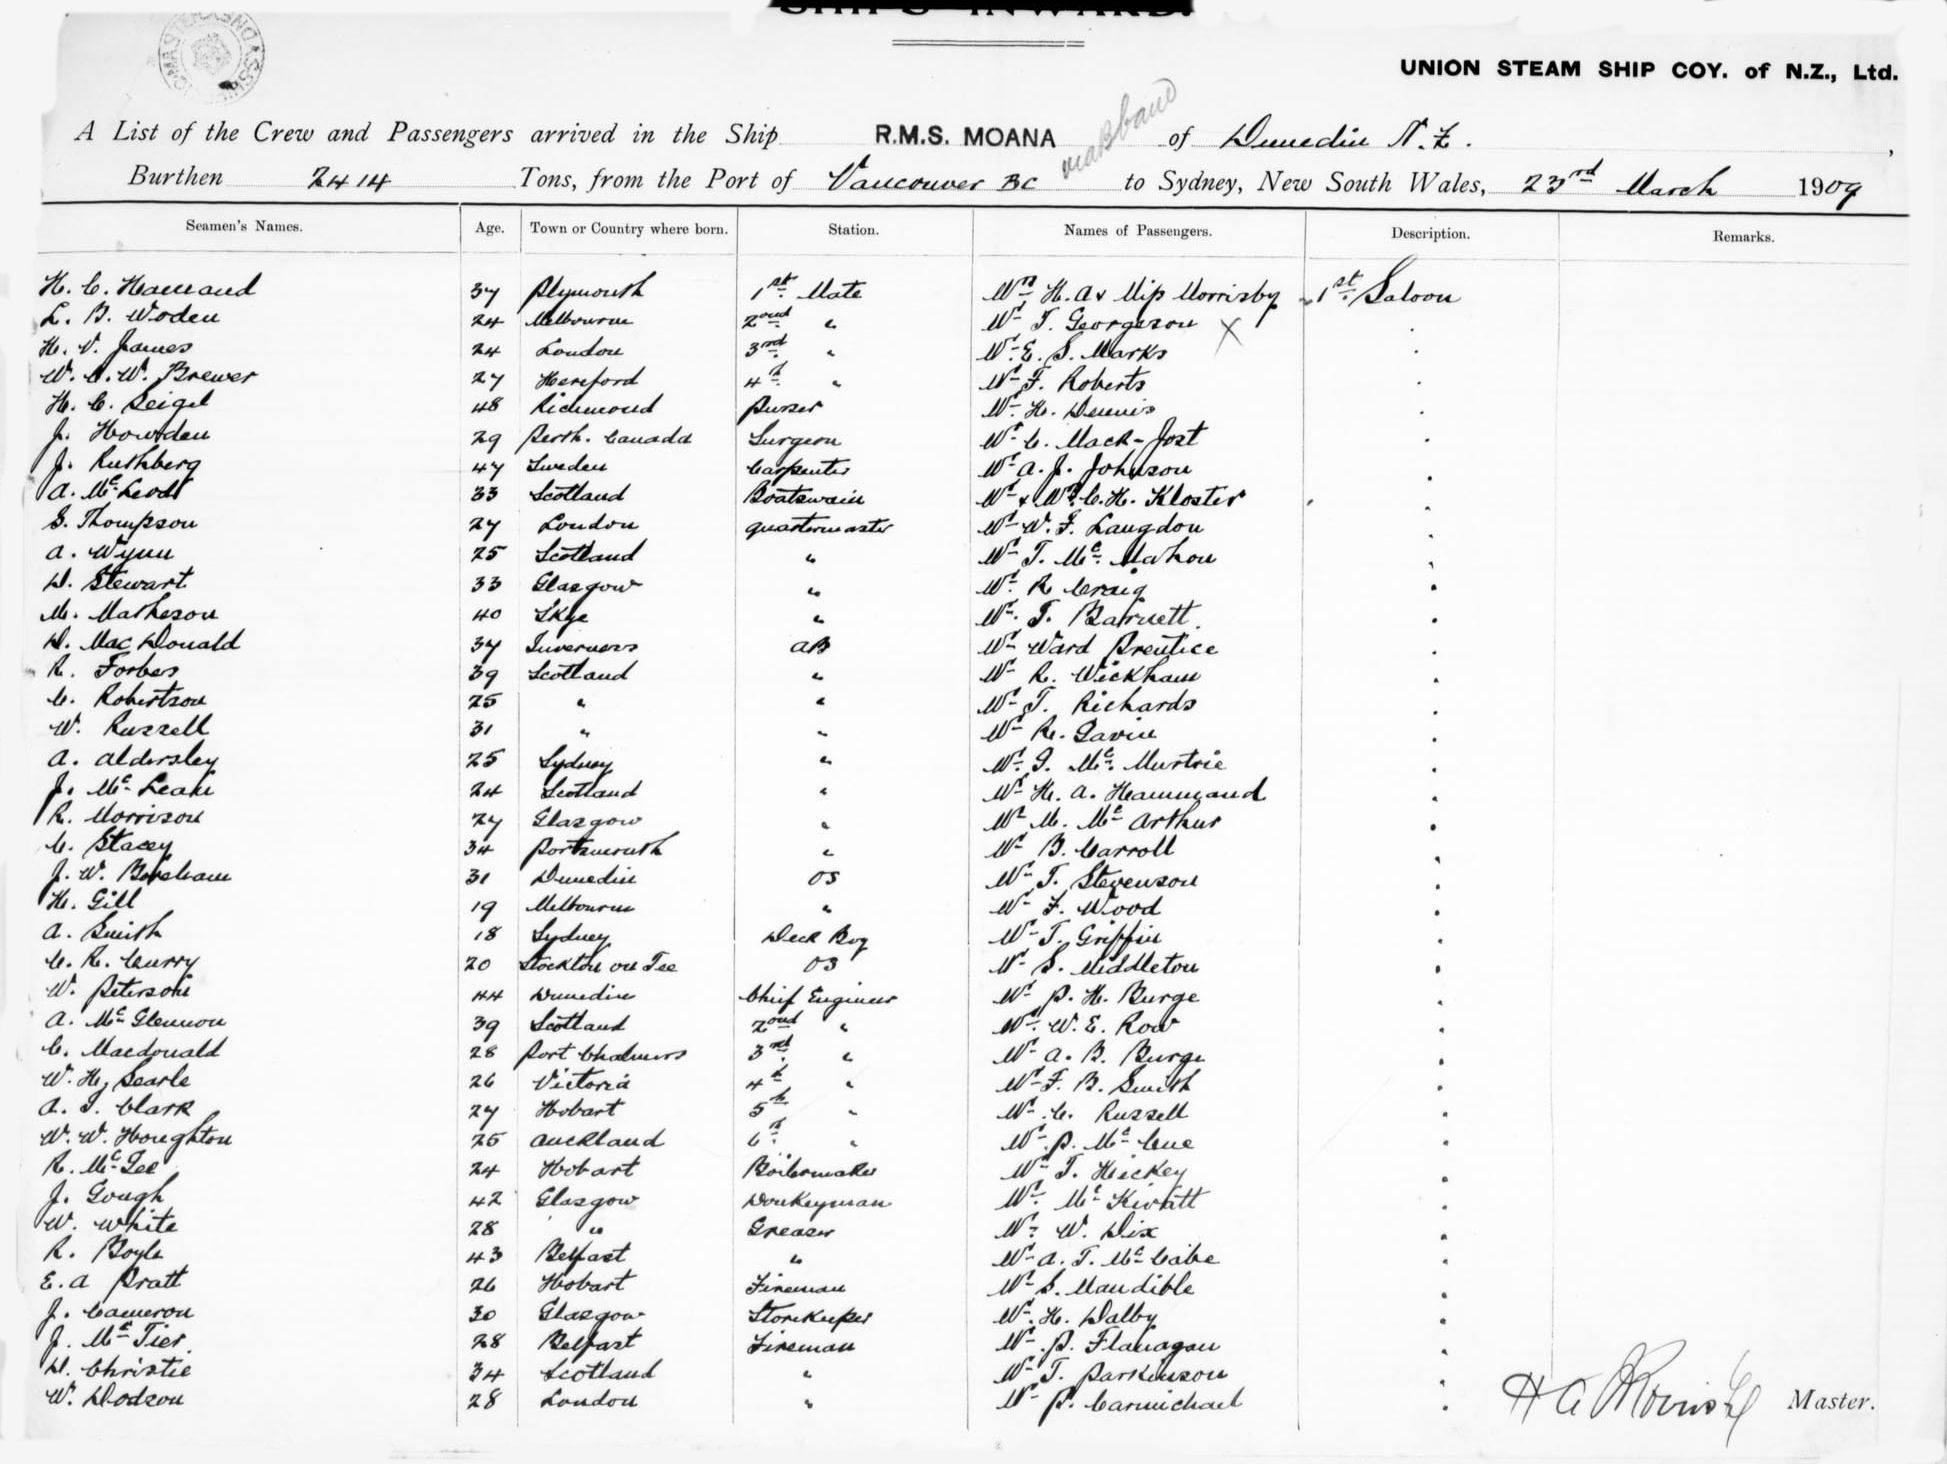 SHIPS INWARD.
UNION STEAM SHIP COY. of N.Z., Ltd.
A List of the Crew and Passengers arrived in the Ship R.M.S. MOANA of Dunedin N.Z.,
Burthen 2414 Tons, from the Port of Vancouver BC to Sydney, New South Wales, 23rd March 1909
Seamen's Names. Age. Town or Country where born. Station. Names of Passengers. Description. Remarks.
H. C. Hamand 37 Plymouth 1st Mate Mr H. A & Miss Morrisby 1st Saloon
L. B. Woden 24 Melbourne 2nd " Mr T. Georgeson X
H. V. James 24 London 3rd " Mr E. S. Marks
W. C. W. Brewer 27 Hereford 4th " Mr F. Roberts
H. C. Seigel 48 Richmond Purser Mr H. Dennis
J. Howden 29 Perth. Canada Surgeon Mr C. Mack-Jost
J. Ruthberg 47 Sweden Carpenter Mr A. J. Johnson
A. McLeod 33 Scotland Boatswain Mr & Mrs C. H. Kloster
G. Thompson 27 London quartermaster Mr W. F. Langdon
A. Wynn 25 Scotland " Mr T. McMahon
D. Stewart 33 Glasgow " Mr R Craig
M. Matheson 40 Skye " Mr T. Barnett
D. MacDonald 37 Inverness AB Mr Ward Prentice
R. Forbes 39 Scotland " Mr R. Wickham
C. Robertson 25 " " Mr T. Richards
W. Russell 31 " " Mr R. Gavin
A. Aldersley 25 Sydney " Mr G. McMurtrie
J. McLean 24 Scotland " Mr H. A. Hammand
R. Morrison 27 Glasgow " Mr M. McArthur
C. Stacey 34 Portsmouth " Mr B. Carroll
J. W. 31 Dunedin OS Mr T. Stevenson
H. Gill 19 Melbourne " Mr F. Wood
A. Smith 18 Sydney Deck Boy Mr T. Griffin
C. R. Curry 20 Stockton on Tee OS Mr S. Middleton
W. Peterson 44 Dunedin Chief Engineer Mr P. H. Burge
A. McGlennon 39 Scotland 2nd " Mr W. E. Row
C. Macdonald 28 Port Chalmers 3rd " Mr A. B. Burge
W. H. Searle 26 Victoria 4th " Mr F. B. Smith
A. G. Clark 27 Hobart 5th " Mr C. Russell
W. W. Houghton 25 Auckland 6th " Mr P. McCue
R. McGee 24 Hobart Boilermaker Mr T. Hickey
J. Gough 42 Glasgow Donkeyman Mr
W. White 28 " Greaser Mr W. Dix
R. Boyle 43 Belfast " Mr A. T. McCabe
E. A Pratt 26 Hobart Fireman Mr S. Mandible
J. Cameron 30 Glasgow Storekeeper Mr H. Dalby
J. McTier 28 Belfast Fireman Mr P. Flanagan
D. Christie 34 Scotland " Mr T. Parkinson
W. Dodson 28 London " Mr P. Carmichael
Master.